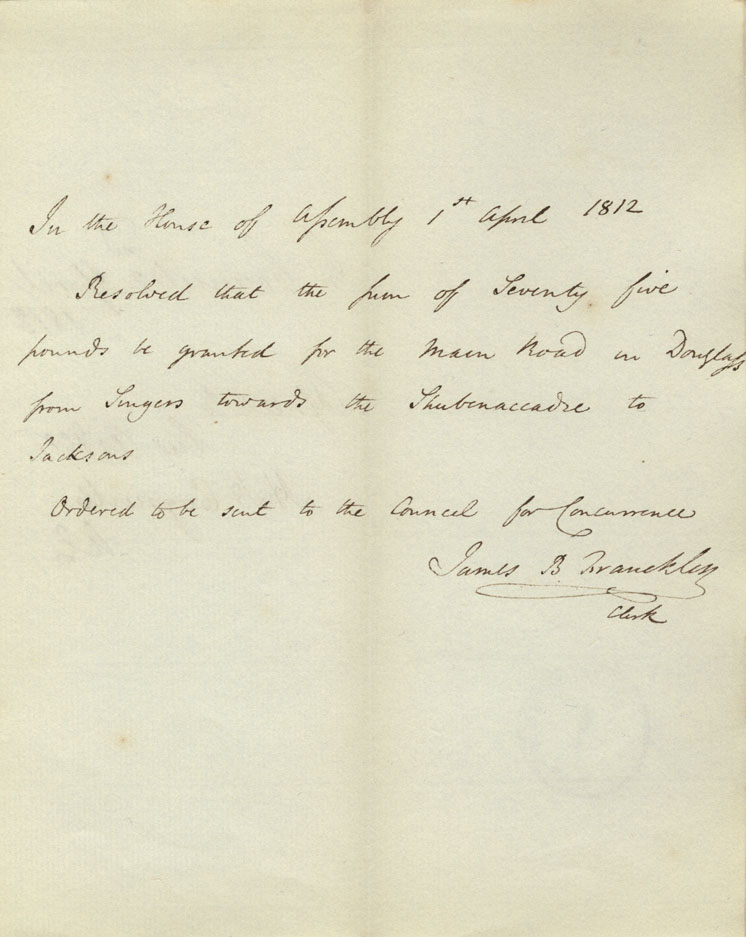 In the House of Assembly 1st April 1812
Resolved that the sum of Seventy five
pounds be granted for the Main Road in Douglass
from Singers towards the Shubenaccadie to
Jacksons
Ordered to be sent to the Council for Concurrence
James B Franckling
Clerk